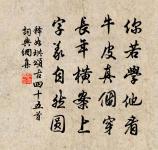 你若學他看
牛皮真個穿
長年橫案上
字義自然圓
釋如珙頌古四十五首
詞典網集